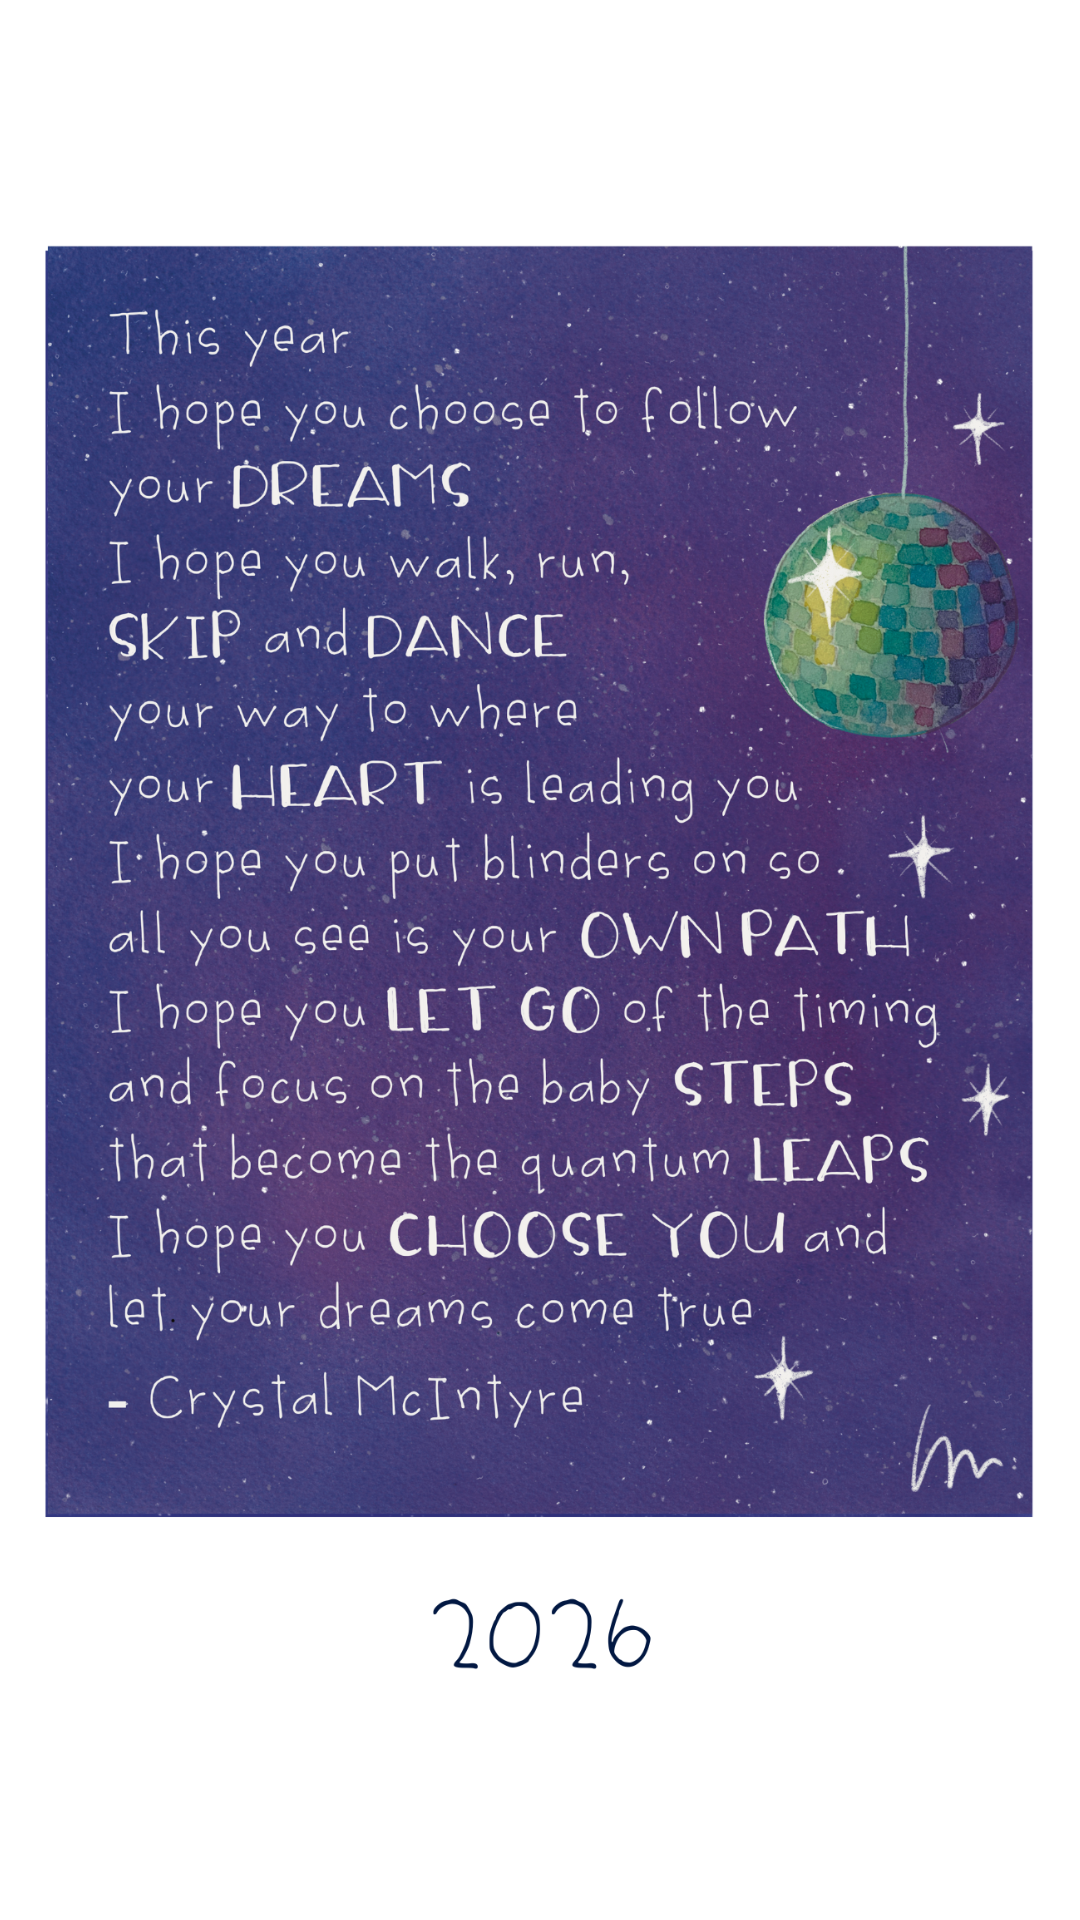 This year
I hope you choose to follow
your DREAMS
I hope you walk, run,
SKIP and DANCE
your way to where
your HEART is leading you
I hope you put blinders on so
all you see is your OWN PATH
I hope you LET GO of the timing
and focus on the baby STEPS
that become the quantum LEAPS
I hope you CHOOSE YOU and
let your dreams come true
- Crystal McIntyre
2026